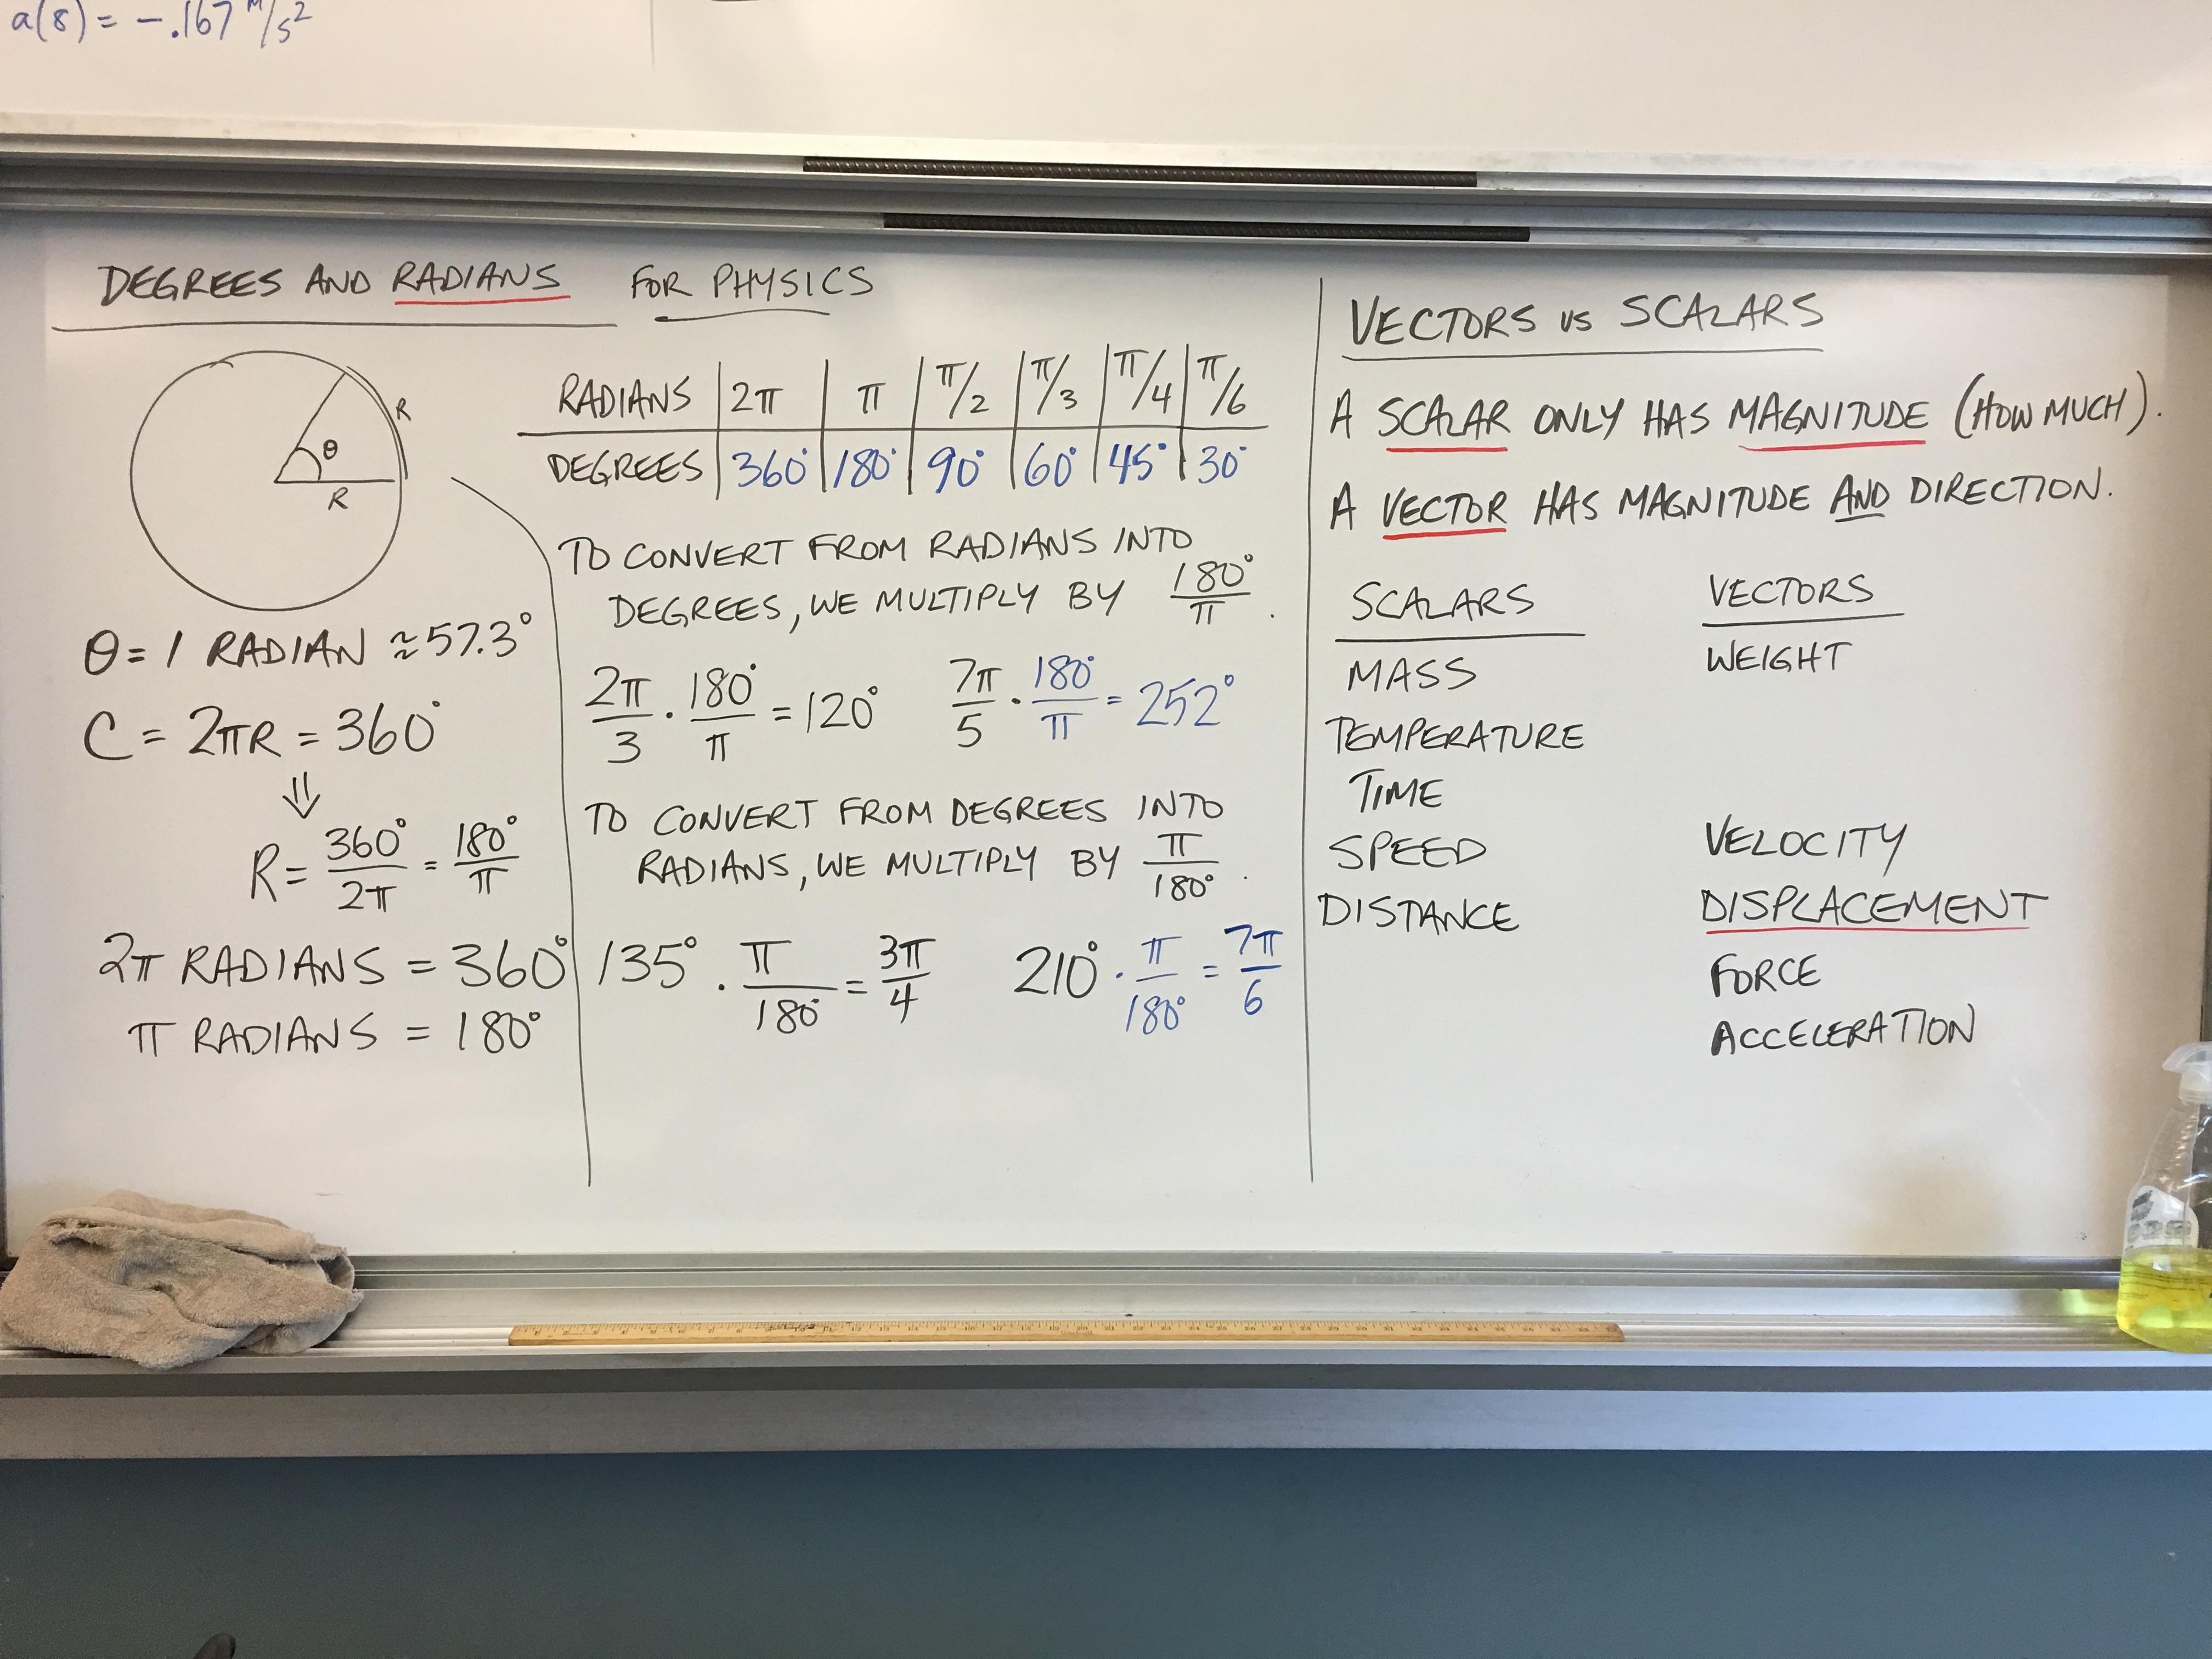 a(8) = -.167 m/s²
DEGREES AND RADIANS FOR PHYSICS
R
θ
R
θ = 1 RADIAN ≈ 57.3°
C = 2πR = 360°
⇓
R = 360°/2π = 180°/π
2π RADIANS = 360°
π RADIANS = 180°
RADIANS | 2π | π | π/2 | π/3 | π/4 | π/6
DEGREES | 360° | 180° | 90° | 60° | 45° | 30°
TO CONVERT FROM RADIANS INTO
DEGREES, WE MULTIPLY BY 180°/π.
2π/3 · 180°/π = 120° 7π/5 · 180°/π = 252°
TO CONVERT FROM DEGREES INTO
RADIANS, WE MULTIPLY BY π/180°.
135° · π/180° = 3π/4 210° · π/180° = 7π/6
VECTORS VS SCALARS
A SCALAR ONLY HAS MAGNITUDE (HOW MUCH).
A VECTOR HAS MAGNITUDE AND DIRECTION.
SCALARS VECTORS
MASS WEIGHT
TEMPERATURE
TIME
SPEED VELOCITY
DISTANCE DISPLACEMENT
FORCE
ACCELERATION